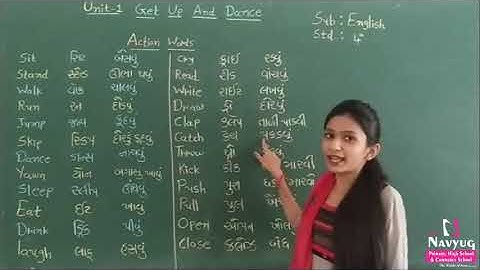 Unit-1 Get Up And Dance
Sub: English
Std.: 4
Action Words
Sit સિટ બેસવું
Stand સ્ટેન્ડ ઊભા થવું
Walk વોક ચાલવું
Run રન દોડવું
Jump જમ્પ કૂદવું
Skip સ્કિપ દોરડું કૂદવું
Dance ડાન્સ નાચવું
Yawn યોન બગાસું ખાવું
Sleep સ્લીપ ઊંઘવું
Eat ઈટ ખાવું
Drink ડ્રિંક પીવું
Laugh લાફ હસવું
Cry ક્રાઈ રડવું
Read રીડ વાંચવું
Write રાઈટ લખવું
Draw ડ્રો દોરવું
Clap ક્લેપ તાળી પાડવી
Catch કેચ પકડવું
Throw થ્રો
Kick કીક મારવી
Push પુશ મારવો
Pull પુલ
Open ઓપન ખોલ
Close ક્લોઝ બંધ
NAVYUG
Primary, High School
& Commerce School